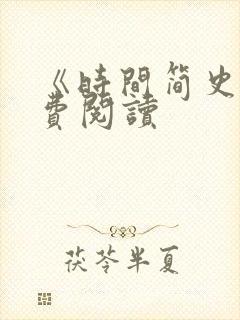 《時間简史
費閱讀
茯苓半夏